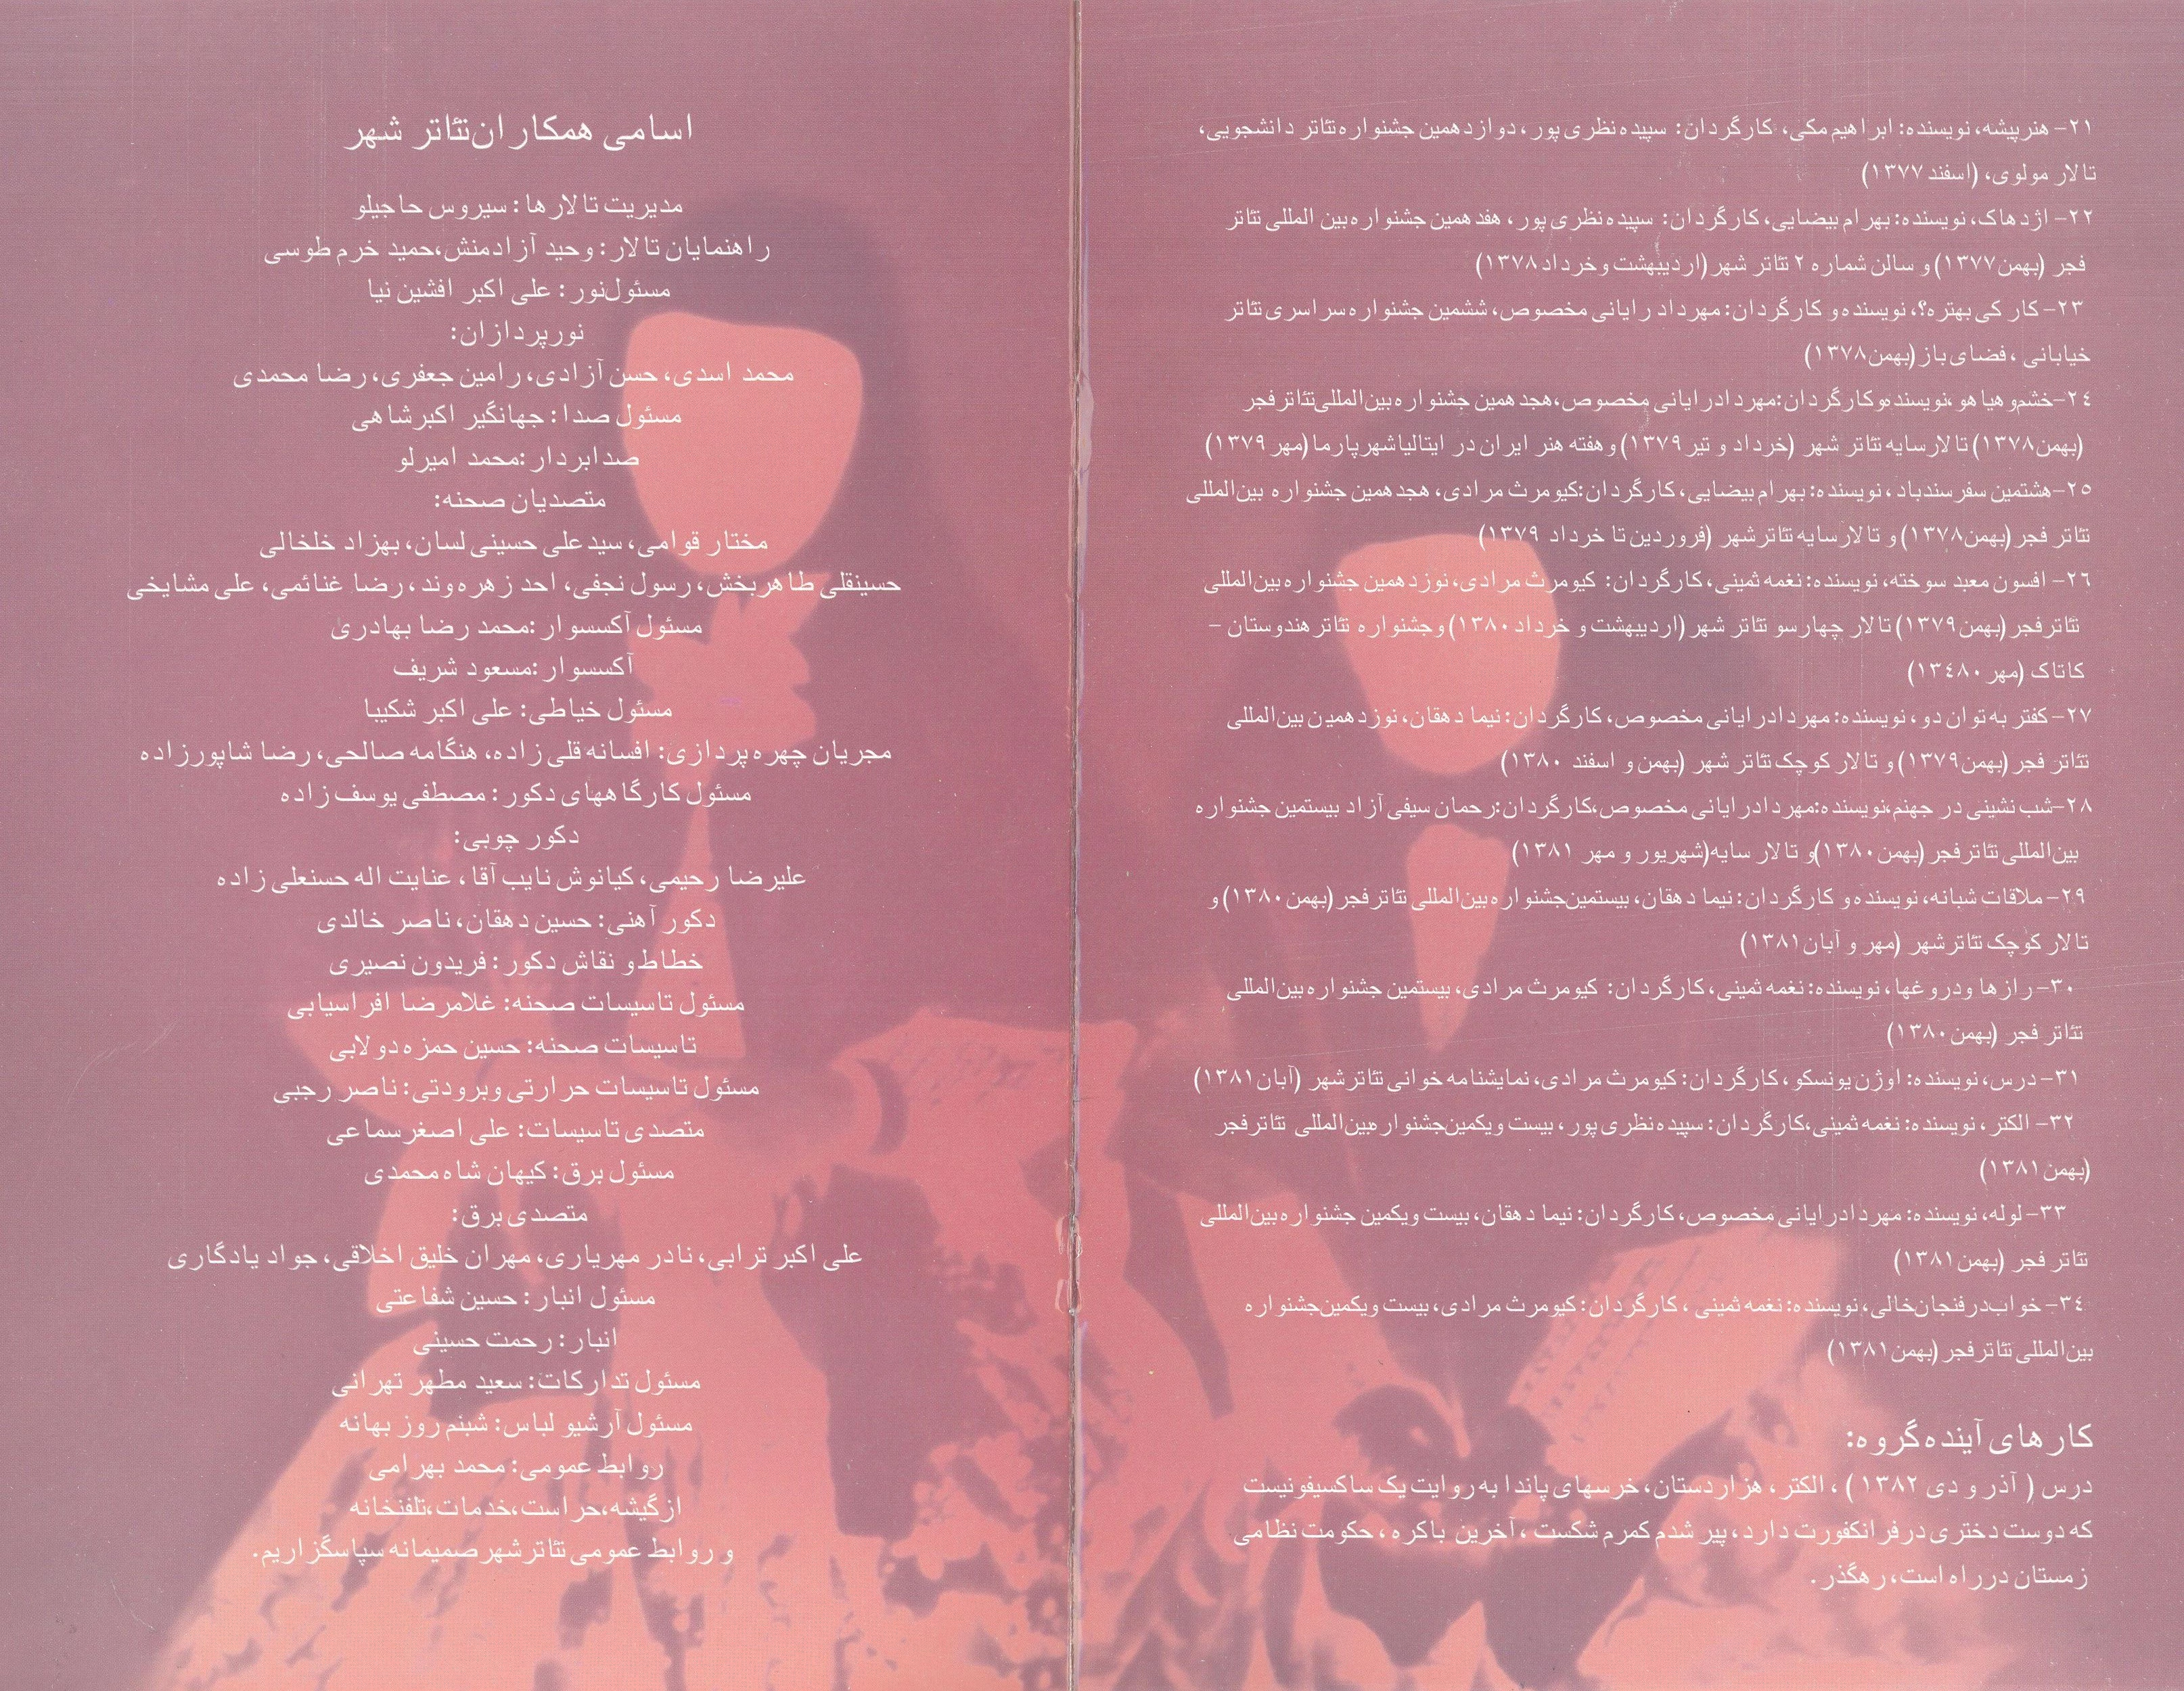 ۲۱- هنرپیشه، نویسنده: ابراهیم مکی، کارگردان: سپیده نظری پور، دوازدهمین جشنواره تئاتر دانشجویی،
تالار مولوی، (اسفند ۱۳۷۷)
۲۲- اژدهاک، نویسنده: بهرام بیضایی، کارگردان: سپیده نظری پور، هفدهمین جشنواره بین المللی تئاتر
فجر (بهمن ۱۳۷۷) و سالن شماره ۲ تئاتر شهر (اردیبهشت و خرداد ۱۳۷۸)
۲۳- کار کی بهتره؟، نویسنده و کارگردان: مهرداد رایانی مخصوص، ششمین جشنواره سراسری تئاتر
خیابانی، فضای باز (بهمن ۱۳۷۸)
۲۴- خشم و هیاهو، نویسنده و کارگردان: مهرداد رایانی مخصوص، هجدهمین جشنواره بین المللی تئاتر فجر
(بهمن ۱۳۷۸) تالار سایه تئاتر شهر (خرداد و تیر ۱۳۷۹) و هفته هنر ایران در ایتالیا شهر پارما (مهر ۱۳۷۹)
۲۵- هشتمین سفر سندباد، نویسنده: بهرام بیضایی، کارگردان: کیومرث مرادی، هجدهمین جشنواره بین المللی
تئاتر فجر (بهمن ۱۳۷۸) و تالار سایه تئاتر شهر (فروردین تا خرداد ۱۳۷۹)
۲۶- افسون معبد سوخته، نویسنده: نغمه ثمینی، کارگردان: کیومرث مرادی، نوزدهمین جشنواره بین المللی
تئاتر فجر (بهمن ۱۳۷۹) تالار چهارسو تئاتر شهر (اردیبهشت و خرداد ۱۳۸۰) و جشنواره تئاتر هندوستان -
کاتاک (مهر ۱۳۴۸۰)
۲۷- کفتر به توان دو، نویسنده: مهرداد رایانی مخصوص، کارگردان: نیما دهقان، نوزدهمین بین المللی
تئاتر فجر (بهمن ۱۳۷۹) و تالار کوچک تئاتر شهر (بهمن و اسفند ۱۳۸۰)
۲۸- شب نشینی در جهنم، نویسنده: مهرداد رایانی مخصوص، کارگردان: رحمان سیفی آزاد بیستمین جشنواره
بین المللی تئاتر فجر (بهمن ۱۳۸۰) و تالار سایه (شهریور و مهر ۱۳۸۱)
۲۹- ملاقات شبانه، نویسنده و کارگردان: نیما دهقان، بیستمین جشنواره بین المللی تئاتر فجر (بهمن ۱۳۸۰) و
تالار کوچک تئاتر شهر (مهر و آبان ۱۳۸۱)
۳۰- رازها و دروغها، نویسنده: نغمه ثمینی، کارگردان: کیومرث مرادی، بیستمین جشنواره بین المللی
تئاتر فجر (بهمن ۱۳۸۰)
۳۱- درس، نویسنده: اوژن یونسکو، کارگردان: کیومرث مرادی، نمایشنامه خوانی تئاتر شهر (آبان ۱۳۸۱)
۳۲- الکتر، نویسنده: نغمه ثمینی، کارگردان: سپیده نظری پور، بیست ویکمین جشنواره بین المللی تئاتر فجر
(بهمن ۱۳۸۱)
۳۳- لوله، نویسنده: مهرداد رایانی مخصوص، کارگردان: نیما دهقان، بیست ویکمین جشنواره بین المللی
تئاتر فجر (بهمن ۱۳۸۱)
۳۴- خواب در فنجان خالی، نویسنده: نغمه ثمینی، کارگردان: کیومرث مرادی، بیست ویکمین جشنواره
بین المللی تئاتر فجر (بهمن ۱۳۸۱)
کارهای آینده گروه:
درس ( آذر و دی ۱۳۸۲ )، الکتر، هزاردستان، خرسهای پاندا به روایت یک ساکسیفونیست
که دوست دختری در فرانکفورت دارد، پیر شدم کمرم شکست، آخرین باکره، حکومت نظامی
زمستان در راه است، رهگذر.
اسامی همکاران تئاتر شهر
مدیریت تالارها: سیروس حاجیلو
راهنمایان تالار: وحید آزادمنش، حمید خرم طوسی
مسئول نور: علی اکبر افشین نیا
نورپردازان:
محمد اسدی، حسن آزادی، رامین جعفری، رضا محمدی
مسئول صدا: جهانگیر اکبرشاهی
صدابردار: محمد امیرلو
متصدیان صحنه:
مختار قوامی، سید علی حسینی لسان، بهزاد خلخالی
حسینقلی طاهربخش، رسول نجفی، احد زهره وند، رضا غنائمی، علی مشایخی
مسئول آکسسوار: محمد رضا بهادری
آکسسوار: مسعود شریف
مسئول خیاطی: علی اکبر شکیبا
مجریان چهره پردازی: افسانه قلی زاده، هنگامه صالحی، رضا شاپورزاده
مسئول کارگاههای دکور: مصطفی یوسف زاده
دکور چوبی:
علیرضا رحیمی، کیانوش نایب آقا، عنایت اله حسنعلی زاده
دکور آهنی: حسین دهقان، ناصر خالدی
خطاط و نقاش دکور: فریدون نصیری
مسئول تاسیسات صحنه: غلامرضا افراسیابی
تاسیسات صحنه: حسین حمزه دولابی
مسئول تاسیسات حرارتی وبرودتی: ناصر رجبی
متصدی تاسیسات: علی اصغر سماعی
مسئول برق: کیهان شاه محمدی
متصدی برق:
علی اکبر ترابی، نادر مهریاری، مهران خلیق اخلاقی، جواد یادگاری
مسئول انبار: حسین شفاعتی
انبار: رحمت حسینی
مسئول تدارکات: سعید مطهر تهرانی
مسئول آرشیو لباس: شبنم روز بهانه
روابط عمومی: محمد بهرامی
ازگیشه، حراست، خدمات، تلفنخانه
و روابط عمومی تئاتر شهر صمیمانه سپاسگزاریم.